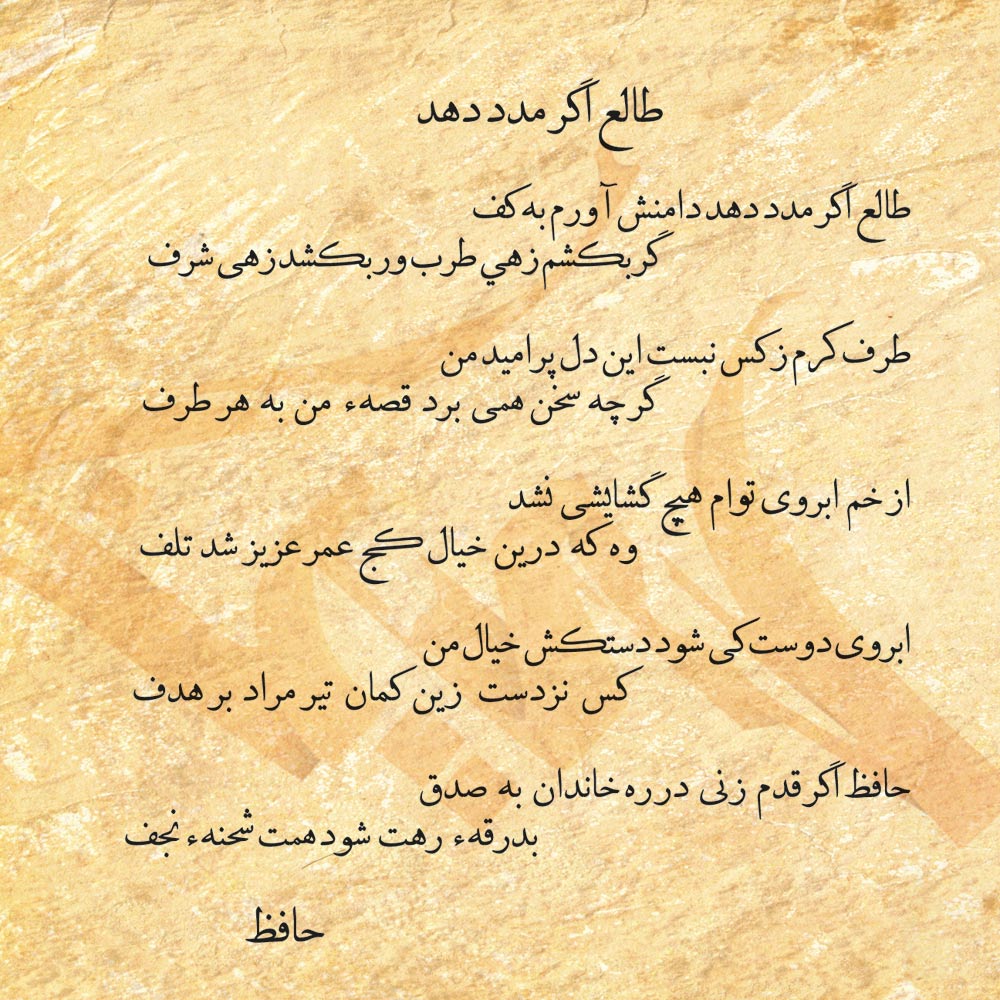 طالع اگر مدد دهد
طالع اگر مدد دهد دامنش آورم به کف
گر بکشم زهي طرب ور بکشد زهی شرف
طرف کرم ز کس نبست این دل پر امید من
گر چه سخن همی برد قصهء من به هر طرف
از خم ابروی توام هیچ گشایشی نشد
وه که درین خیال کج عمر عزیز شد تلف
ابروی دوست کی شود دستکش خیال من
کس نزدست زین کمان تیر مراد بر هدف
حافظ اگر قدم زنی در ره خاندان به صدق
بدرقهء رهت شود همت شحنهء نجف
حافظ